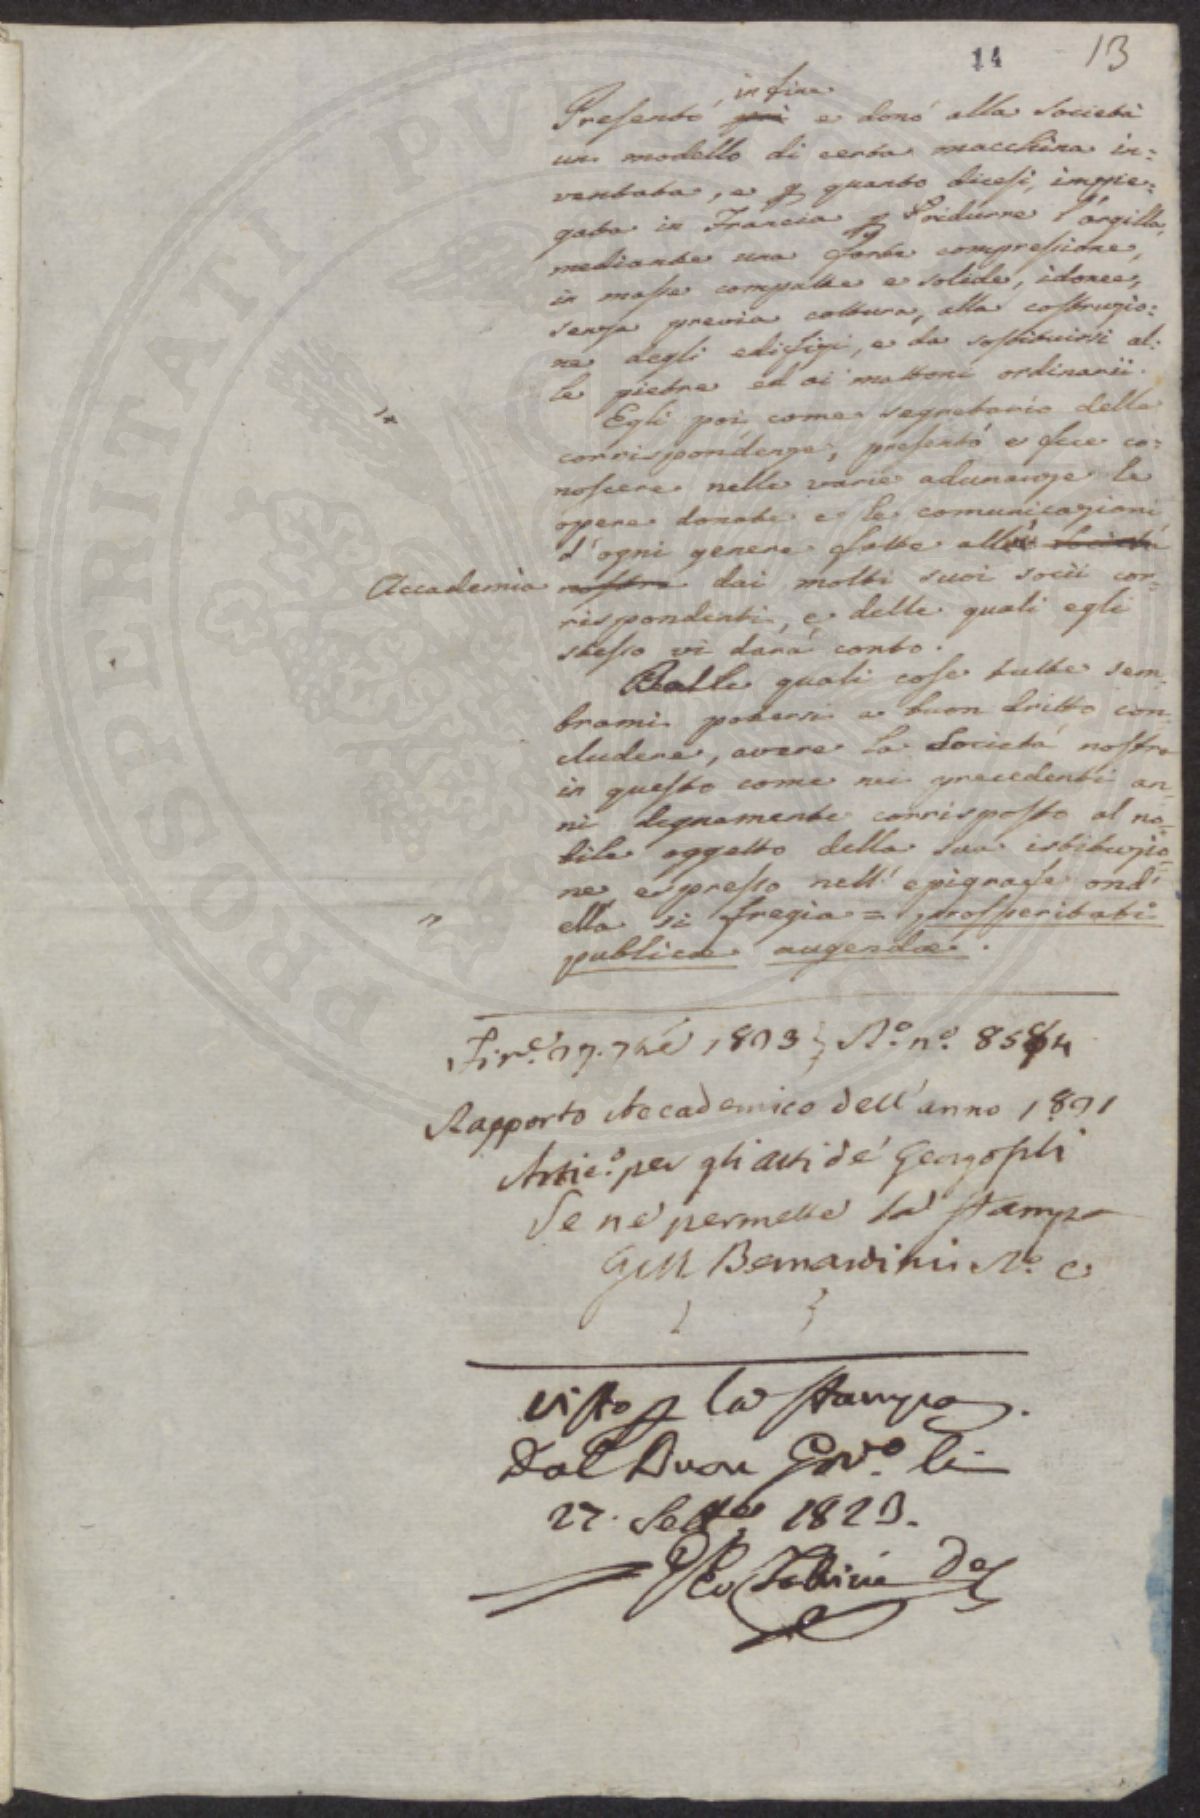 14 13
infine
Presentò più e donò alla Società
un modello di certa macchina in=
ventata, e p quanto dicesi, impie=
gata in Francia p ridurre l'argilla,
mediante una forte compressione,
in masse compatte e solide, idonee,
senza previa cottura, alla costruzio=
ne degli edifizi, e da sostituirsi al=
le pietre ed ai mattoni ordinarii.
Egli poi come segretario delle
corrispondenze, presentò e fece co=
noscere nelle varie adunanze le
opere donate e le comunicazioni
d'ogni genere fatte all' Società
Accademia nostra dai molti suoi socii cor=
rispondenti, e delle quali egli
stesso vi darà conto.
Dalle quali cose tutte sem=
brami potersi a buon dritto con=
cludere, avere la Società nostra
in questo come nei precedenti an=
ni degnamente corrisposto al no=
bile oggetto della sua istituzio=
ne espresso nell' epigrafe ond'
ella si fregia = prosperitati
publicae augendae.
Fir.e 27. 1823 R.o n.o
Rapporto Accademico dell' anno 1821
Artic.o per gli atti de' Georgofili
Se ne permette la stampa
Bernardini R.o C
Visto p la stampa.
Dal Buon Gov.o li
27. Sett.e 1823.